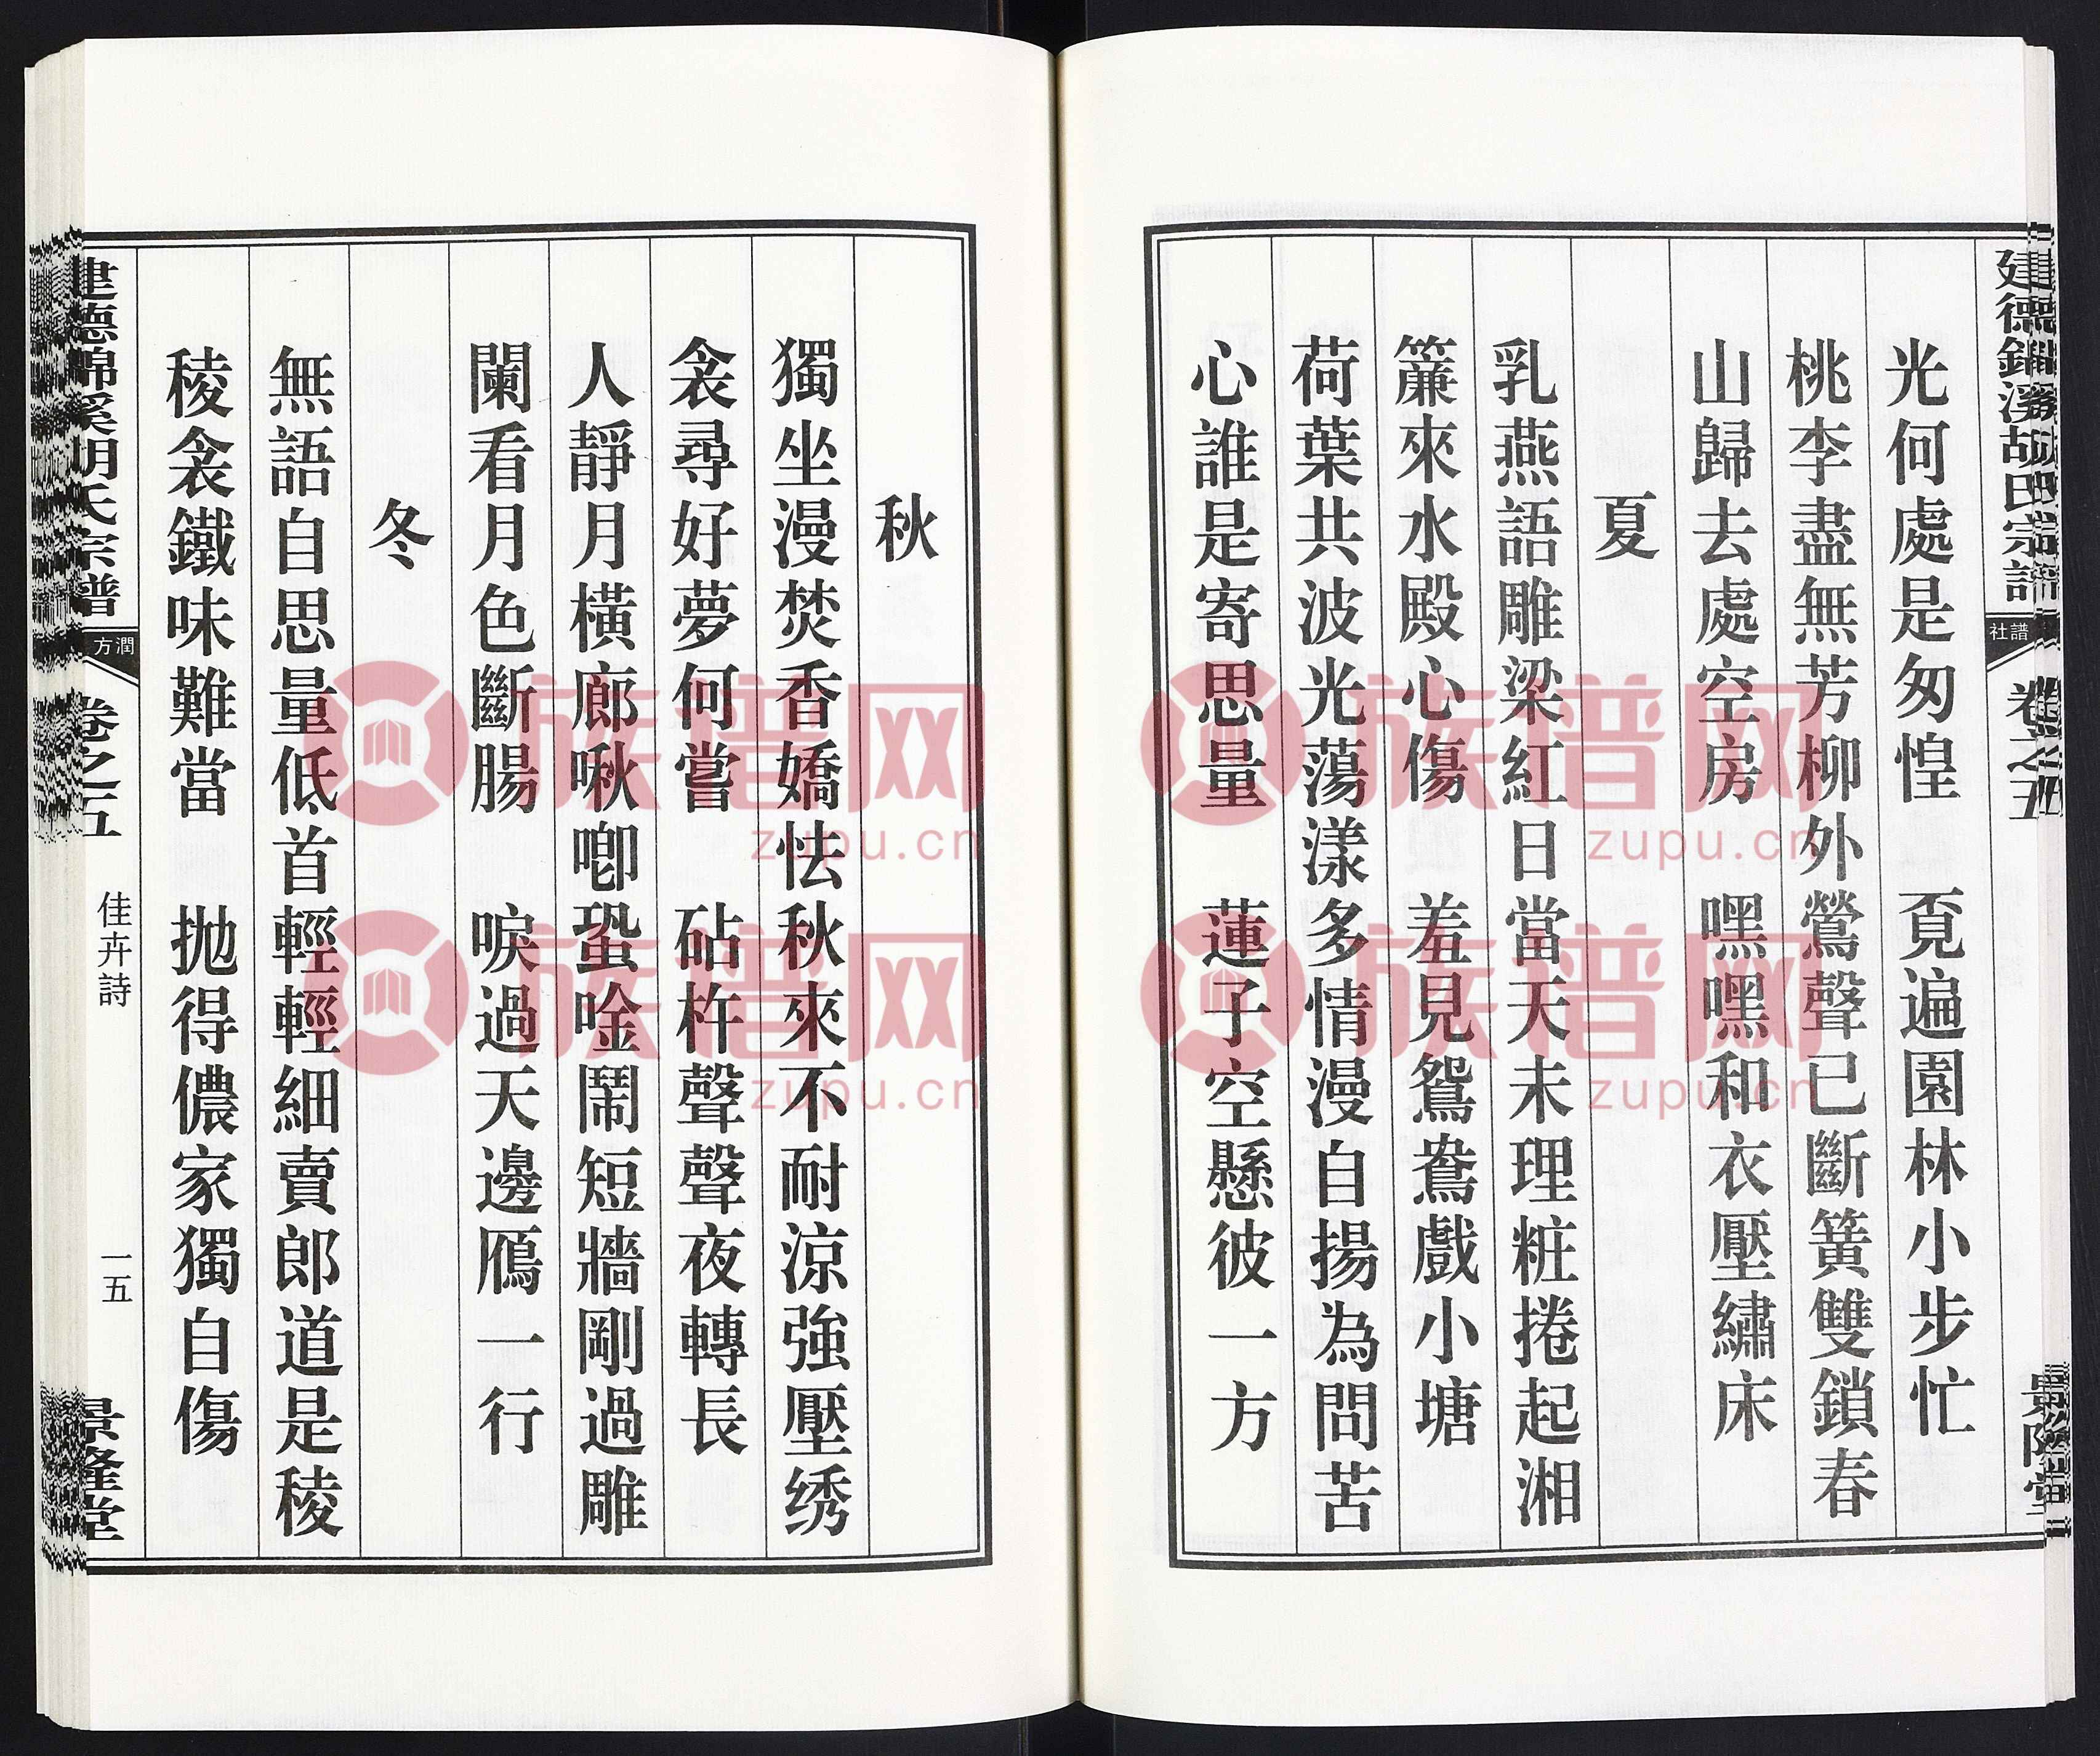 光何處是匆惶　覓遍園林小步忙
桃李盡無芳柳外鶯聲已斷簧雙鎖春
山歸去處空房　嘿嘿和衣壓繡床
夏
乳燕語雕梁紅日當天未理粧捲起湘
簾來水殿心傷　羞見鴛鴦戲小塘
荷葉共波光蕩漾多情漫自揚為問苦
心誰是寄思量　蓮子空懸彼一方
譜社
卷之五
秋
獨坐漫焚香嬌怯秋來不耐涼強壓绣
衾尋好夢何嘗　砧杵聲聲夜轉長
人靜月橫廊啾喞蛩唫鬧短牆剛過雕
闌看月色斷腸　唳過天邊鴈一行
冬
無語自思量低首輕輕細賣郎道是稜
稜衾鐵味難當　抛得儂家獨自傷
建德錦溪胡氏宗譜
潤方
卷之五
佳卉詩
一五
景隆堂
族谱网
zupu.cn
族谱网
zupu.cn
族谱网
zupu.cn
族谱网
zupu.cn